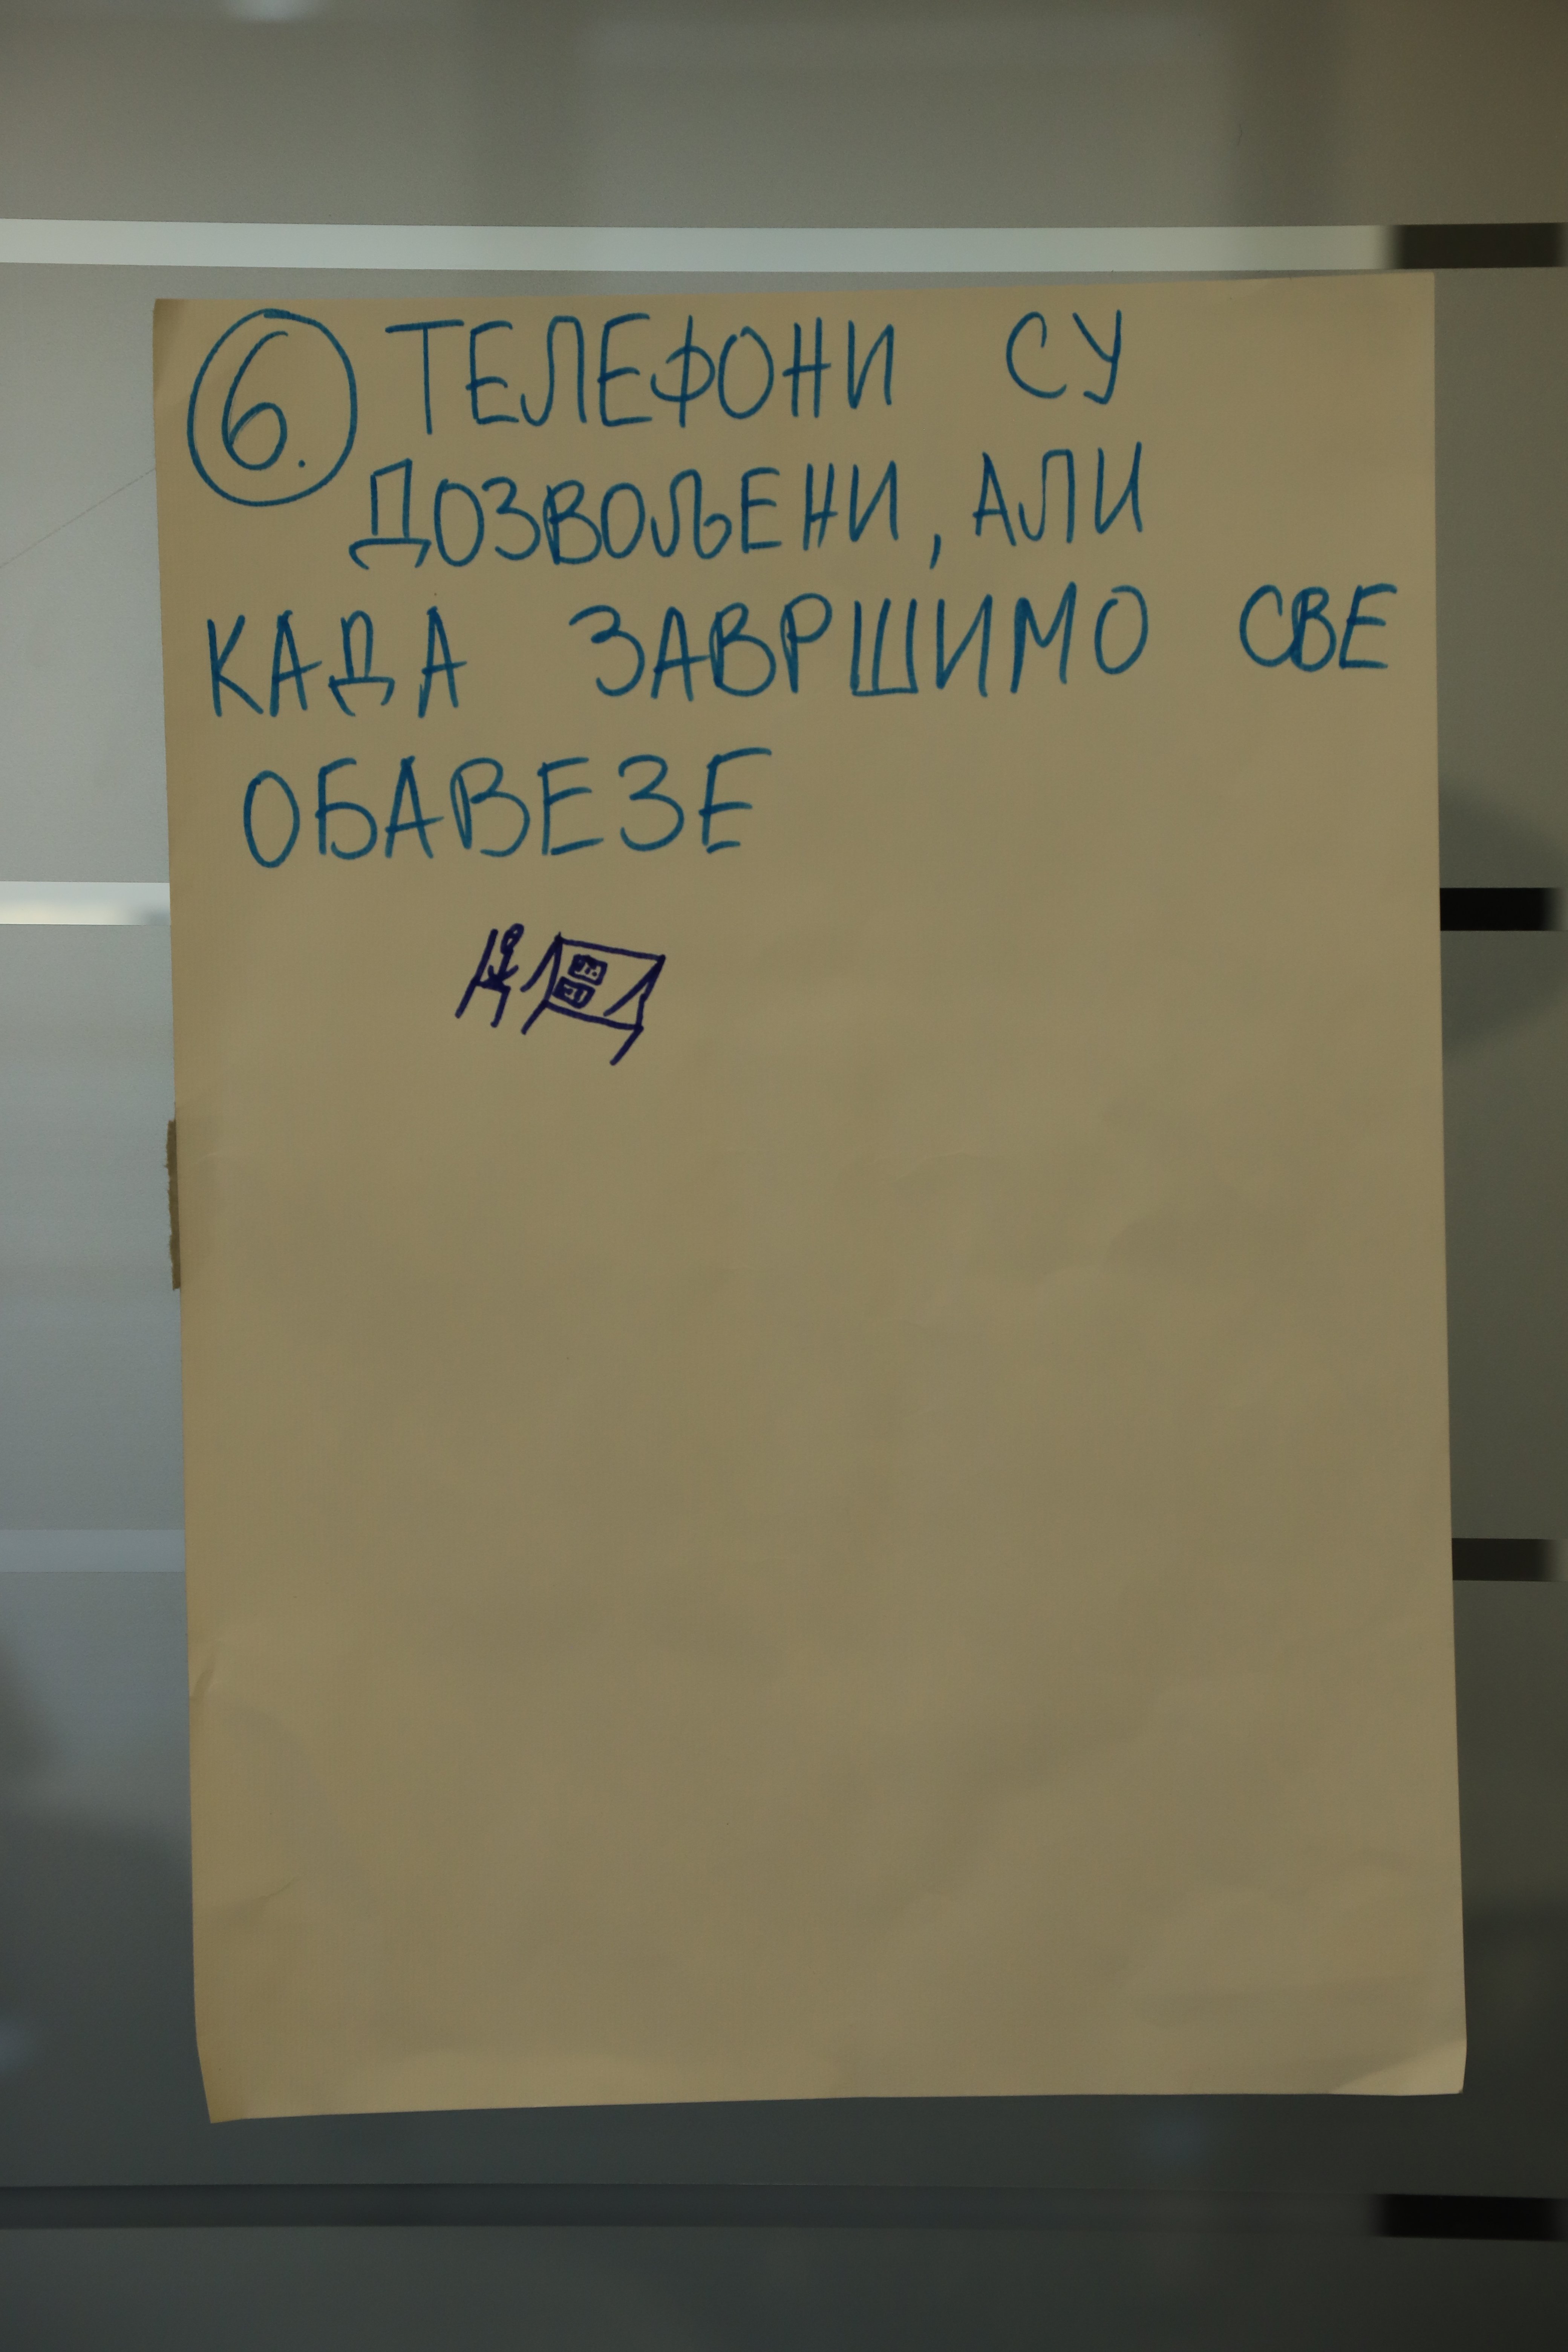 6. ТЕЛЕФОНИ СУ
ДОЗВОЉЕНИ, АЛИ
КАДА ЗАВРШИМО СВЕ
ОБАВЕЗЕ